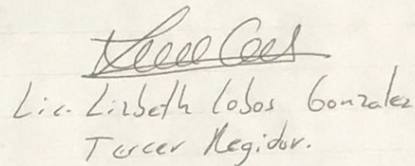 Lic. Lizbeth Cobos Gonzalez
Tercer Regidor.